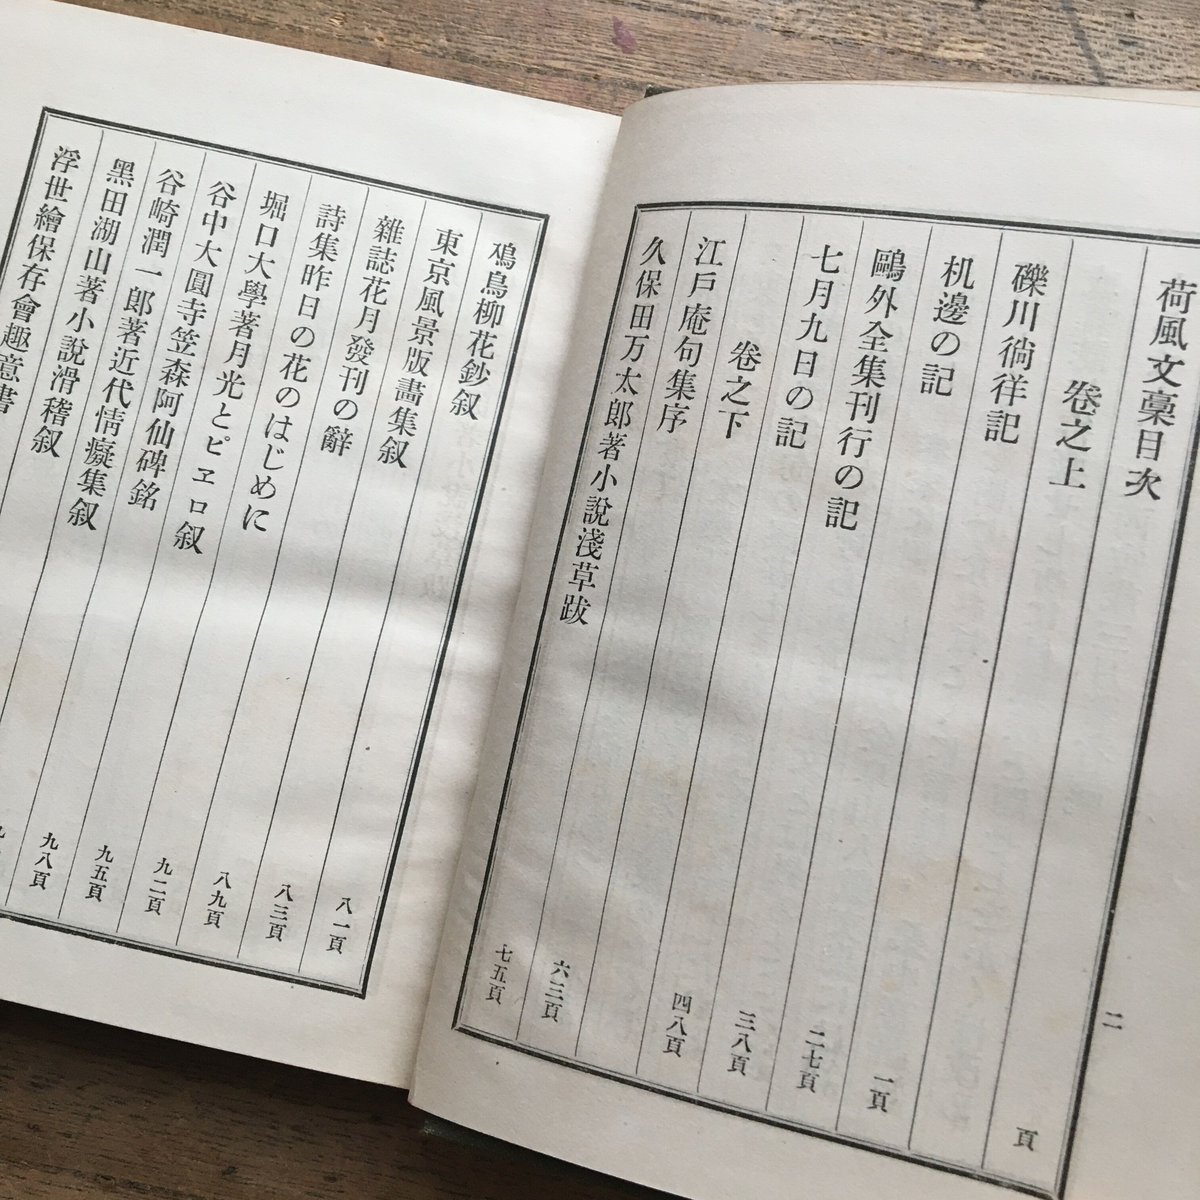 荷風文稾目次 頁
巻之上
礫川徜徉記 一頁
机邊の記 二七頁
鷗外全集刊行の記 三八頁
七月九日の記 四八頁
巻之下
江戶庵句集序 六三頁
久保田万太郎著小說淺草跋 七五頁
二
鳥柳花鈔叙 八一頁
東京風景版畫集叙 八三頁
雜誌花月發刊の辭 八九頁
詩集昨日の花のはじめに 九二頁
堀口大學著月光とピヱロ叙 九五頁
谷中大圓寺笠森阿仙碑銘 九八頁
谷崎潤一郎著近代情癡集叙
黑田湖山著小說滑稽叙
浮世繪保存會趣意書